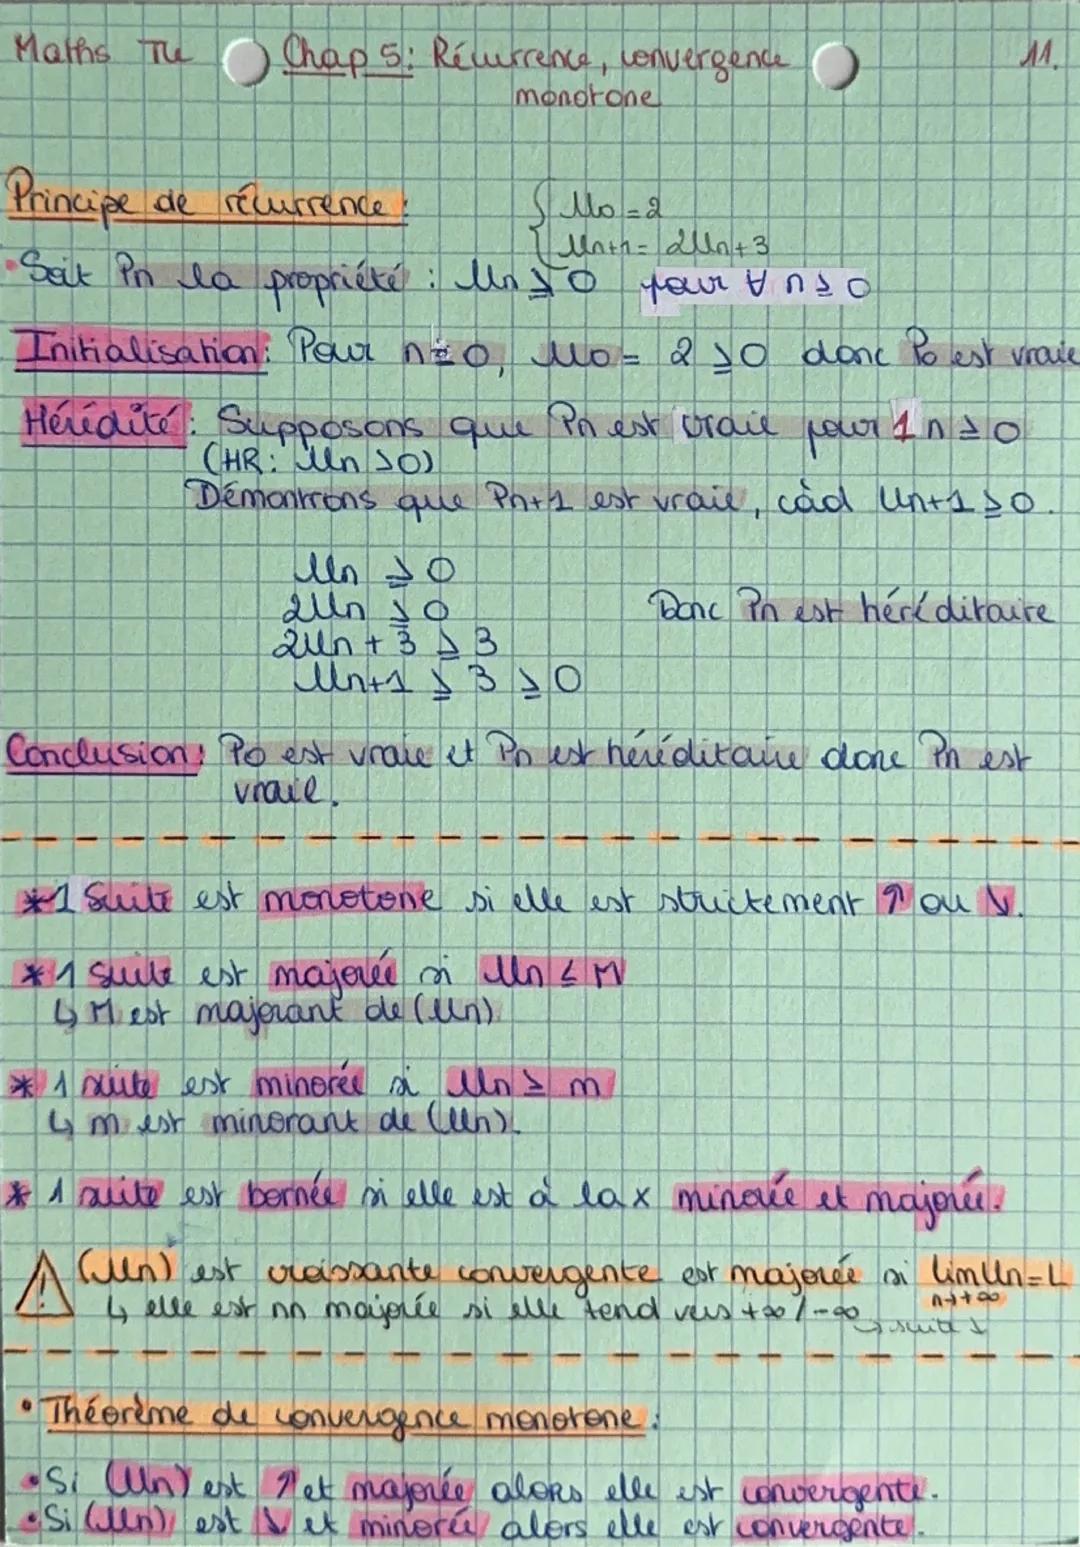 Maths Tle Chap 5: Récurrence, convergence 11.
monotone
Principe de récurrence :
{ U0 = 2
Un+1 = 2Un + 3
• Soit Pn la propriété : Un ≥ 0 pour ∀ n ≥ 0
Initialisation: Pour n = 0, U0 = 2 ≥ 0 donc P0 est vraie
Hérédité : Supposons que Pn est vraie pour 1 n ≥ 0
(HR : Un ≥ 0)
Démontrons que Pn+1 est vraie, càd Un+1 ≥ 0.
Un ≥ 0
2Un ≥ 0 Donc Pn est héréditaire
2Un + 3 ≥ 3
Un+1 ≥ 3 ≥ 0
Conclusion : P0 est vraie et Pn est héréditaire donc Pn est
vraie.
* 1 Suite est monotone si elle est strictement ↗ ou ↘.
* 1 Suite est majorée si Un ≤ M
↳ M est majorant de (Un)
* 1 suite est minorée si Un ≥ m
↳ m est minorant de (Un).
* 1 suite est bornée si elle est à la x minorée et majorée.
⚠ (Un) est croissante convergente est majorée si lim Un = L
n→+∞
↳ elle est nn majorée si elle tend vers +∞ / -∞
↳ suite ↓
• Théorème de convergence monotone :
• Si (Un) est ↗ et majorée alors elle est convergente.
• Si (Un) est ↘ et minorée alors elle est convergente.